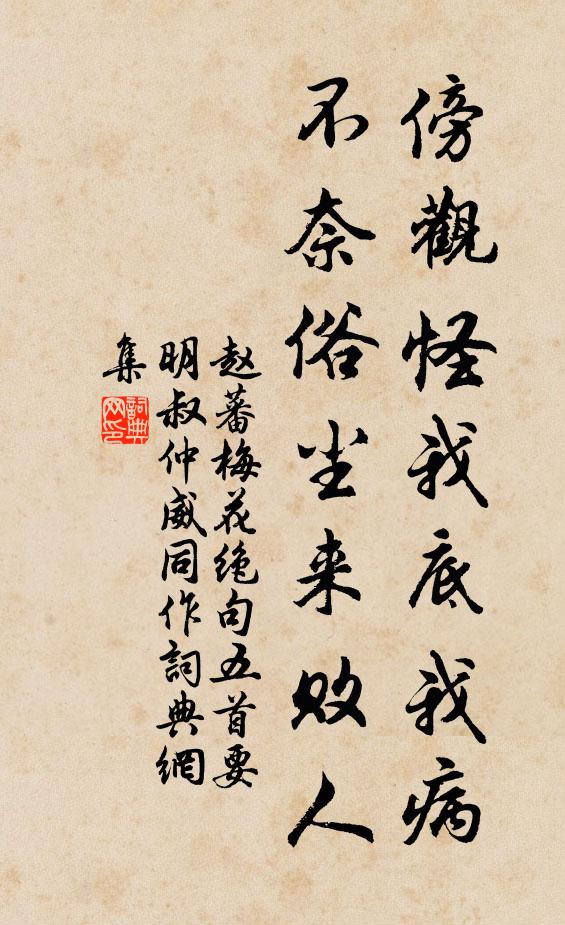 傍觀怪我底我病
不奈俗尘来败人
赵蕃梅花绝句五首要
明叔仲威同作詞典網
集
詞典
网印